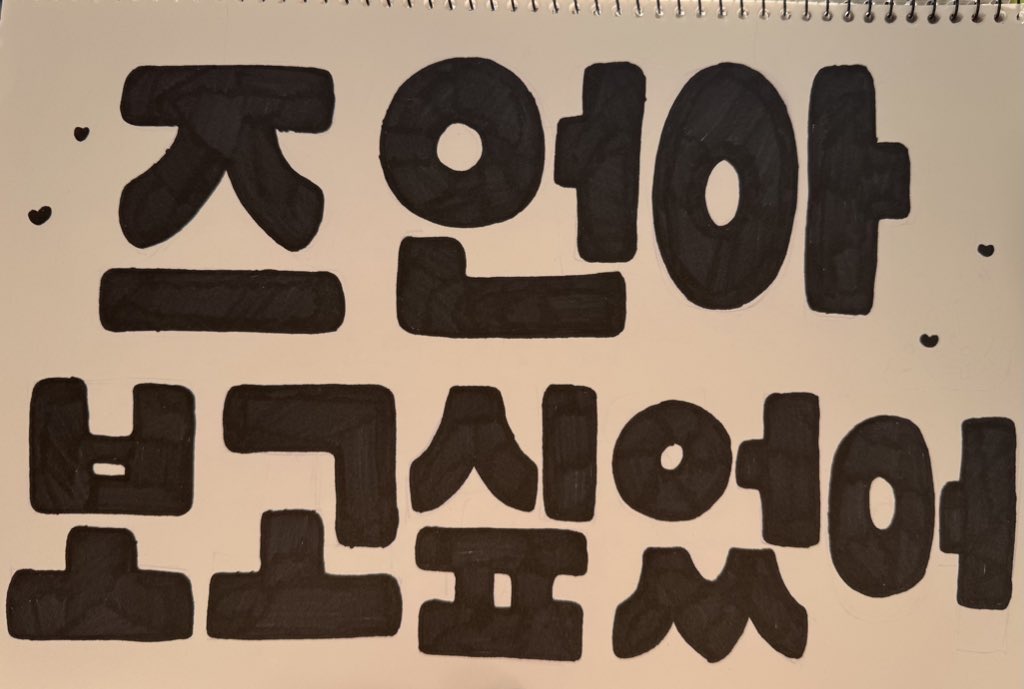 즈언아
보고싶었어